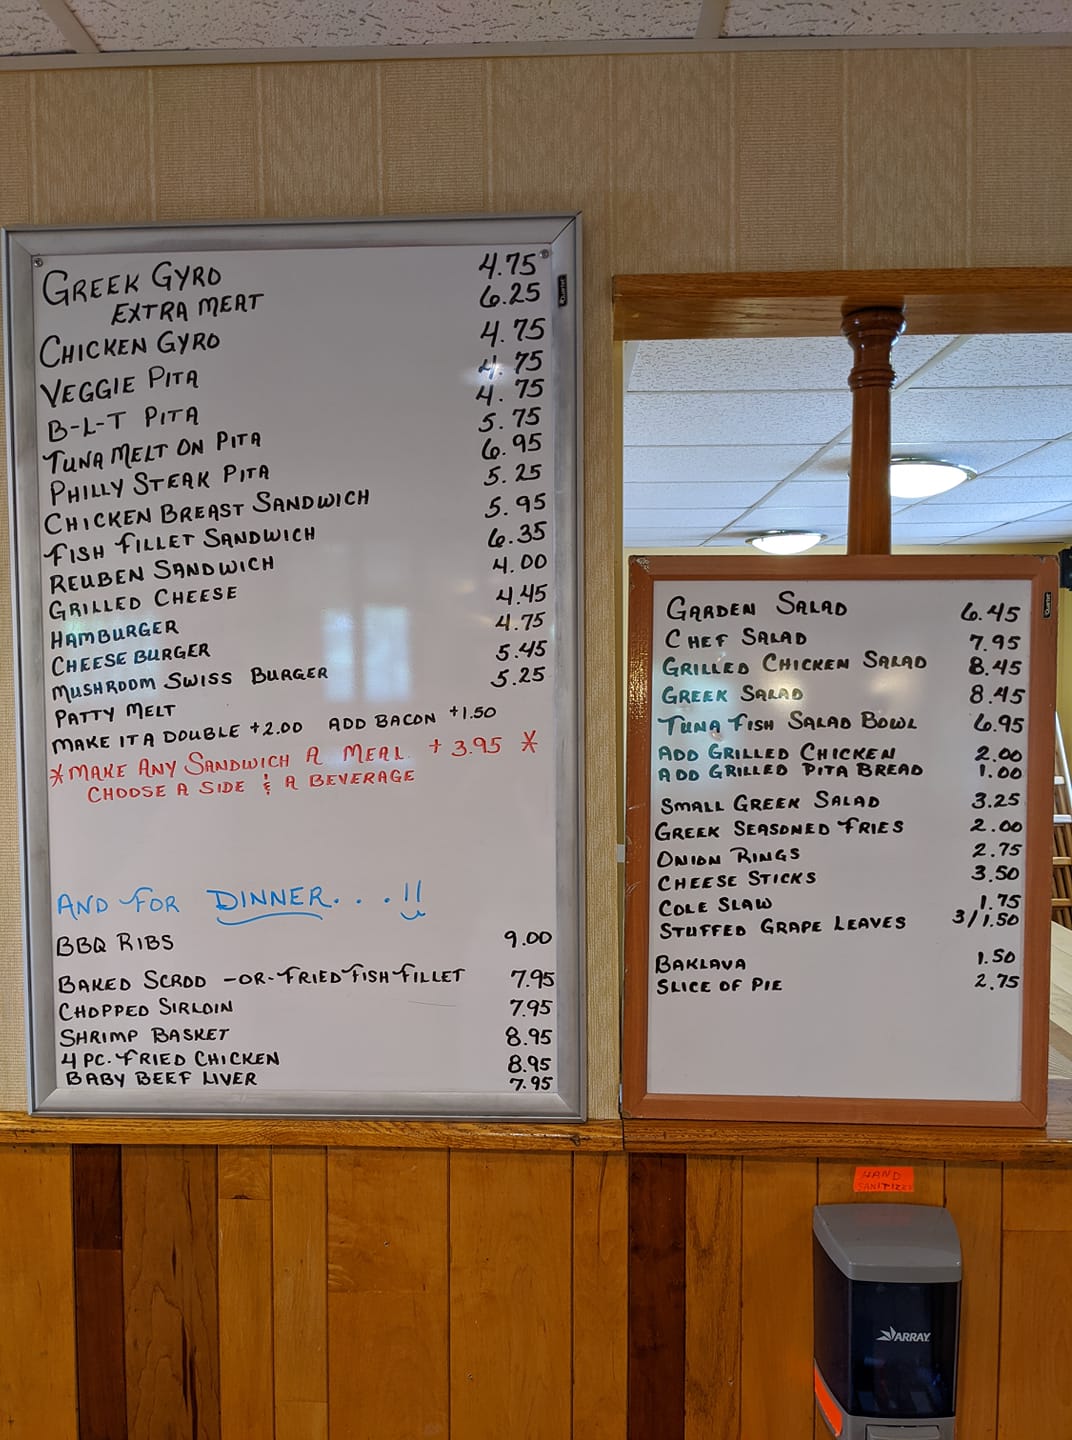 GREEK GYRO 4.75
EXTRA MEAT 6.25
CHICKEN GYRO 4.75
VEGGIE PITA 4.75
B-L-T PITA 4.75
TUNA MELT ON PITA 5.75
PHILLY STEAK PITA 6.95
CHICKEN BREAST SANDWICH 5.25
FISH FILLET SANDWICH 5.95
REUBEN SANDWICH 6.35
GRILLED CHEESE 4.00
HAMBURGER 4.45
CHEESE BURGER 4.75
MUSHROOM SWISS BURGER 5.45
PATTY MELT 5.25
MAKE IT A DOUBLE +2.00 ADD BACON +1.50
*MAKE ANY SANDWICH A MEAL. + 3.95 *
CHOOSE A SIDE & A BEVERAGE
AND FOR DINNER. . . !!
BBQ RIBS 9.00
BAKED SCROD -OR- FRIED FISH FILLET 7.95
CHOPPED SIRLOIN 7.95
SHRIMP BASKET 8.95
4 PC. FRIED CHICKEN 8.95
BABY BEEF LIVER 7.95
GARDEN SALAD 6.45
CHEF SALAD 7.95
GRILLED CHICKEN SALAD 8.45
GREEK SALAD 8.45
TUNA FISH SALAD BOWL 6.95
ADD GRILLED CHICKEN 2.00
ADD GRILLED PITA BREAD 1.00
SMALL GREEK SALAD 3.25
GREEK SEASONED FRIES 2.00
ONION RINGS 2.75
CHEESE STICKS 3.50
COLE SLAW 1.75
STUFFED GRAPE LEAVES 3/1.50
BAKLAVA 1.50
SLICE OF PIE 2.75
HAND
SANITIZER
ARRAY